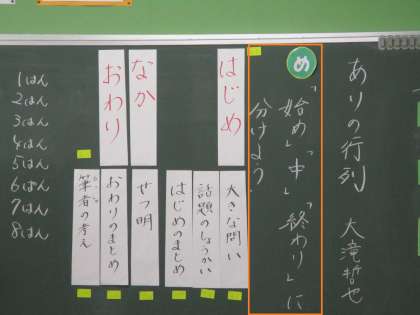 ありの行列 大滝哲也
め
「始め」「中」「終わり」に
分けよう。
はじめ
大きな問い
話題のしょうかい
はじめのまとめ
なか
せつ明
おわり
おわりのまとめ
筆者の考え
1はん
2はん
3はん
4はん
5はん
6はん
7はん
8はん